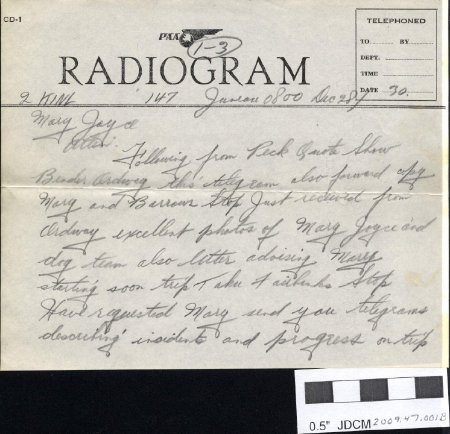 CD-1
PAA
1-3
RADIOGRAM
TELEPHONED
TO BY
DEPT.
TIME
DATE 30
2 KIM 147 Juneau 0800 Dec 28
Mary Joyce
Following from Peck Quote Show
Bender Ordway this telegram also forward copy
Mary and Barrows Stop Just received from
Ordway excellent photos of Mary Joyce and
dog team also letter advising Mary
starting soon trip Taku Fairbanks Stop
Have requested Mary send you telegrams
describing incidents and progress on trip
0.5" JDCM 2009.47.001B